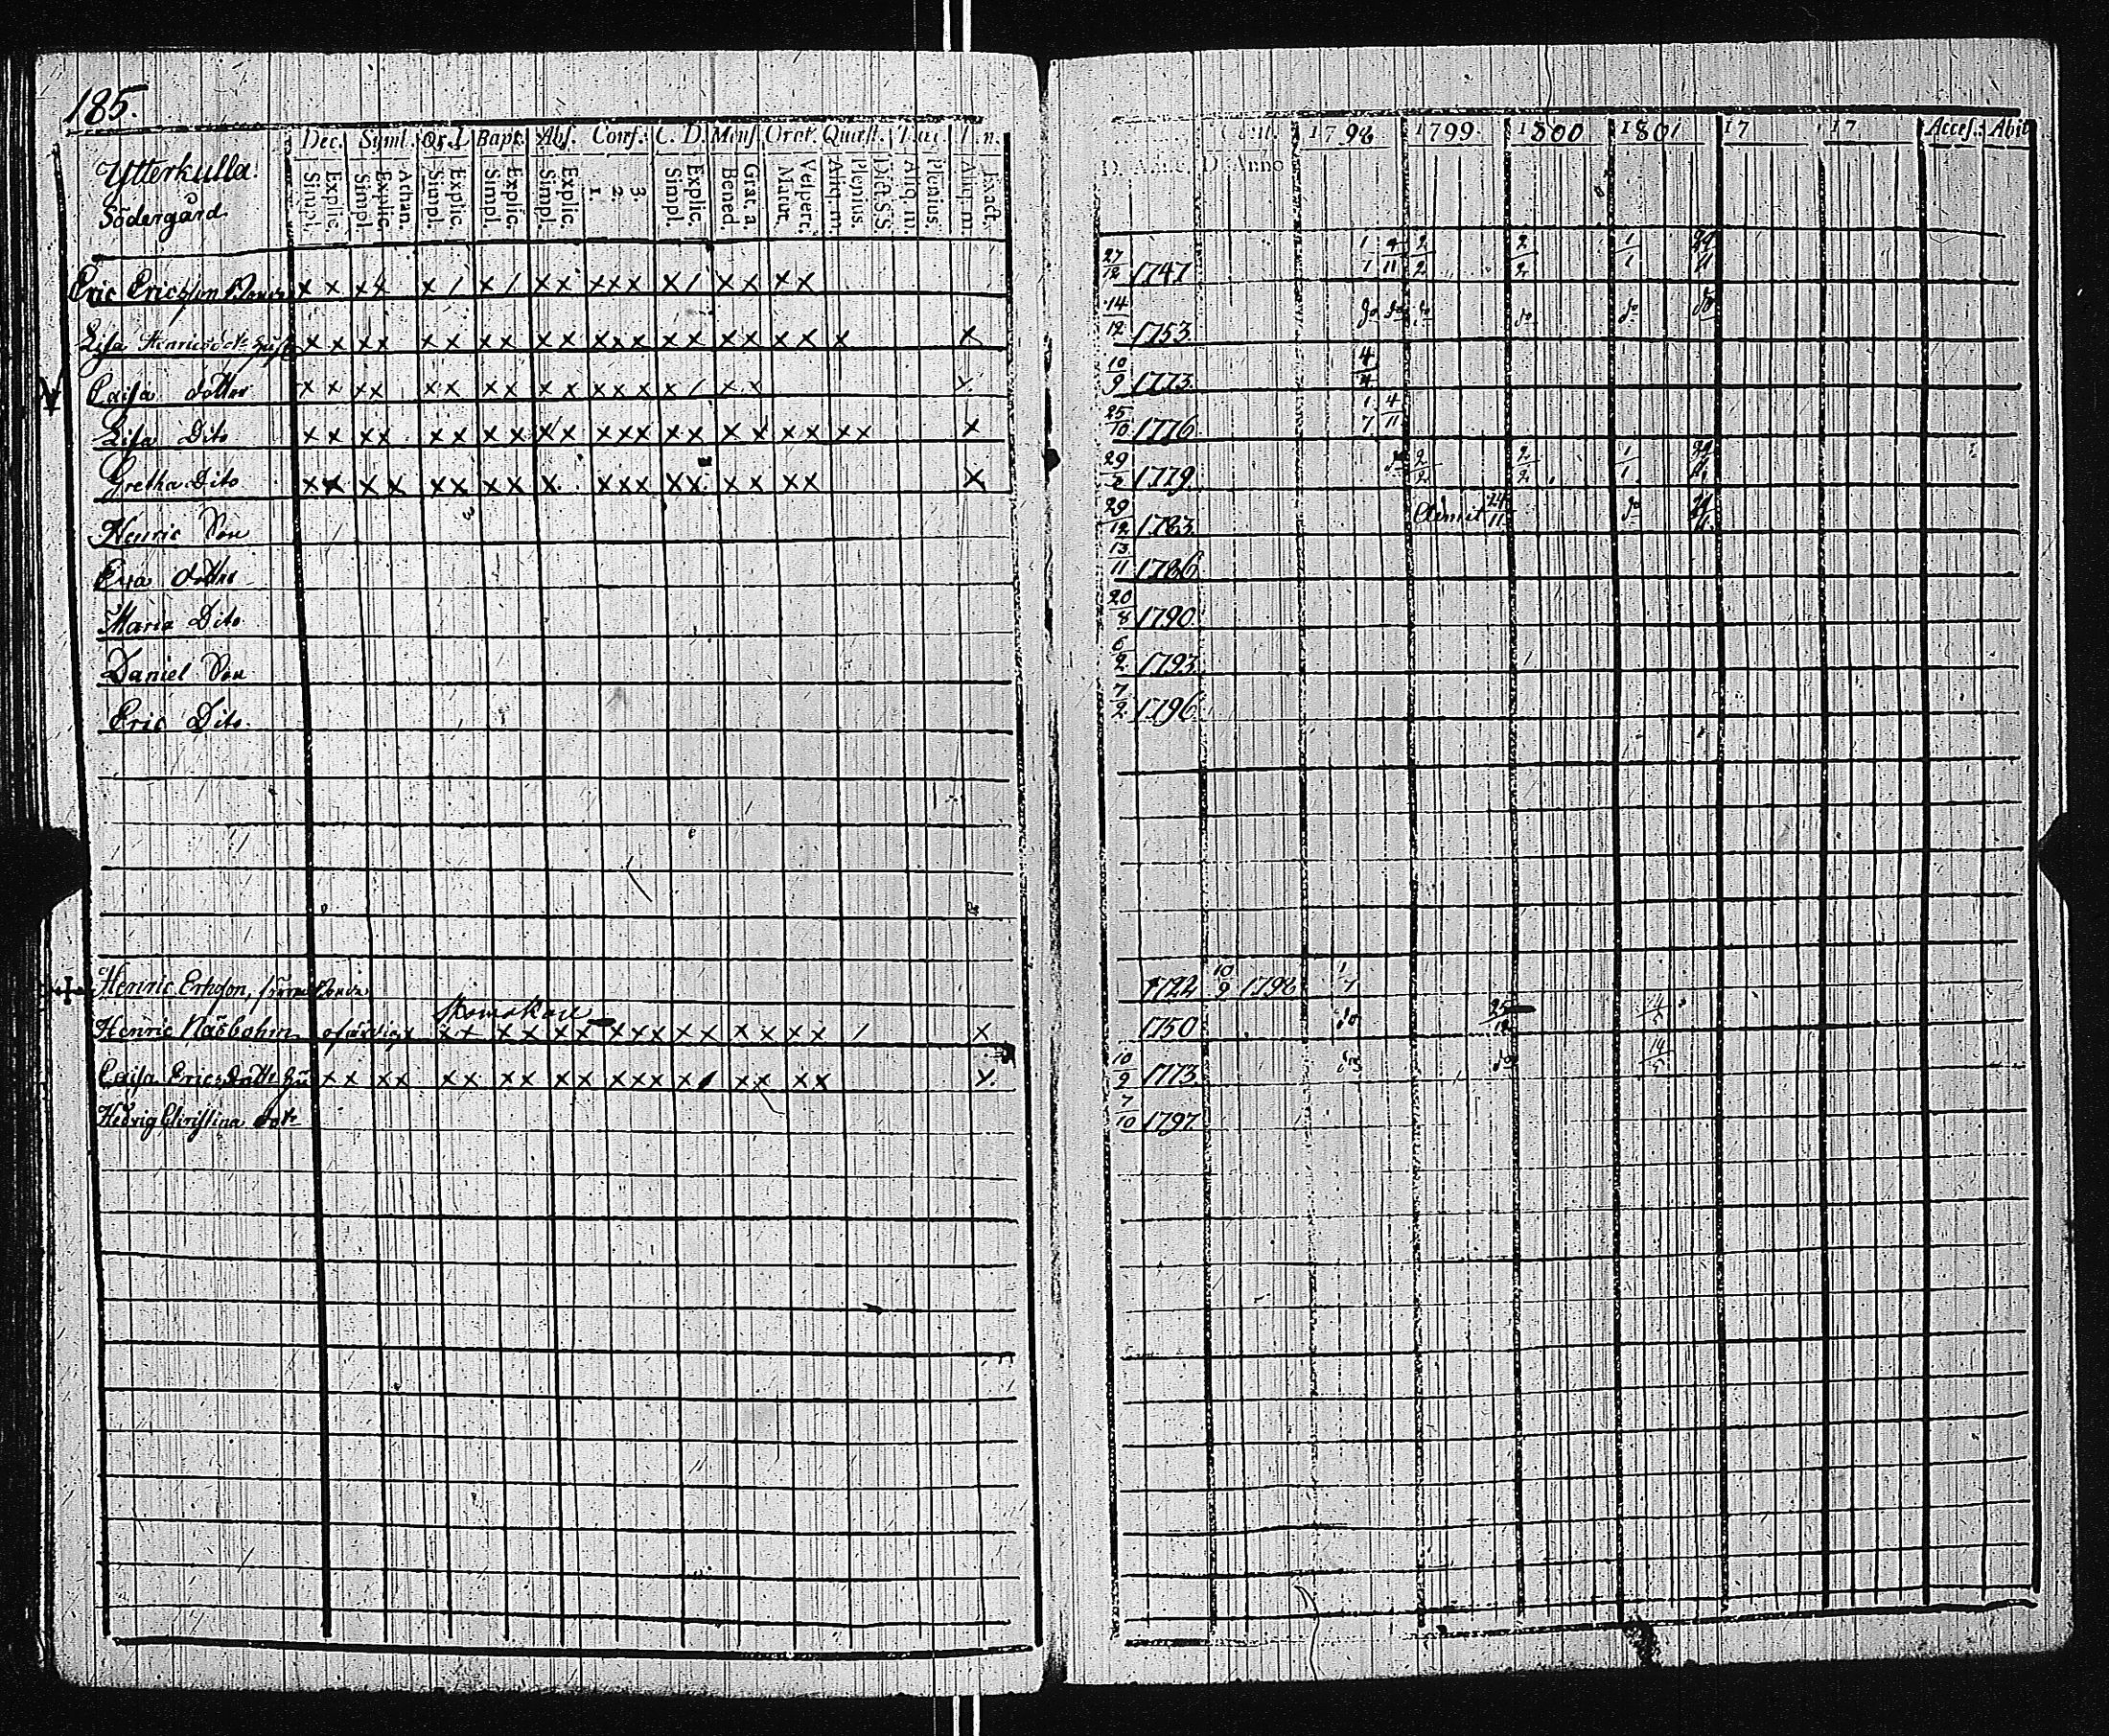 185.
Dec. Symb. Or. D. Bapt. Abs. Conf. C. D. Mens. Orat. Quæst. Tab. In. Cent. 1798 1799 1800 1801 17 17 Access. Abiit
Ytterkulla
Södergård
Simpl. Explic. Simpl. Explic. Athan. Simpl. Explic. Simpl. Explic. Simpl. Explic. 1. 2. 3. Simpl. Explic. Bened. Grat. a. Matut. Vespert. Aliq. m. Plenius. Dict. S. S. Aliq. m. Plenius. Aliq. m. Exact. D. Anno. D. Anno
Eric Ericsson x x x x x / x / x x x x x x / x x x x 27/12 1747 1/1 4/11 2/2 2/2 1/1
Lisa Henricsdotr x x x x x x x x x x x x x x x x x x x x x 14/12 1753 do do do do do do
Caisa dotter x x x x x x x x x x x x x x / x x x 10/9 1773 4/4
Lisa Dito x x x x x x x x x x x x x x x x x x x x x x 25/10 1776 1/7 4/11
Gretha Dito x x x x x x x x x x x x x x x x x x x 29/2 1779 do 2/2 2/2 1/1
Henric Son 29/12 1783 Admit 24/11 do
Eva dotter 13/11 1786
Maria Dito 20/8 1790
Daniel Son 6/2 1793
Eric Dito 7/2 1796
Henric Ericson, 1722 10/9 1798 1/7
Henric Näsbohm ofärdig x x x x x x x x x x x x x x x / x 1750 do 25/12 14/5
Caisa Ericsdotter x x x x x x x x x x x x x x / x x x x x 10/9 1773 do do 14/5
Hedvig Christina dotr 7/10 1797